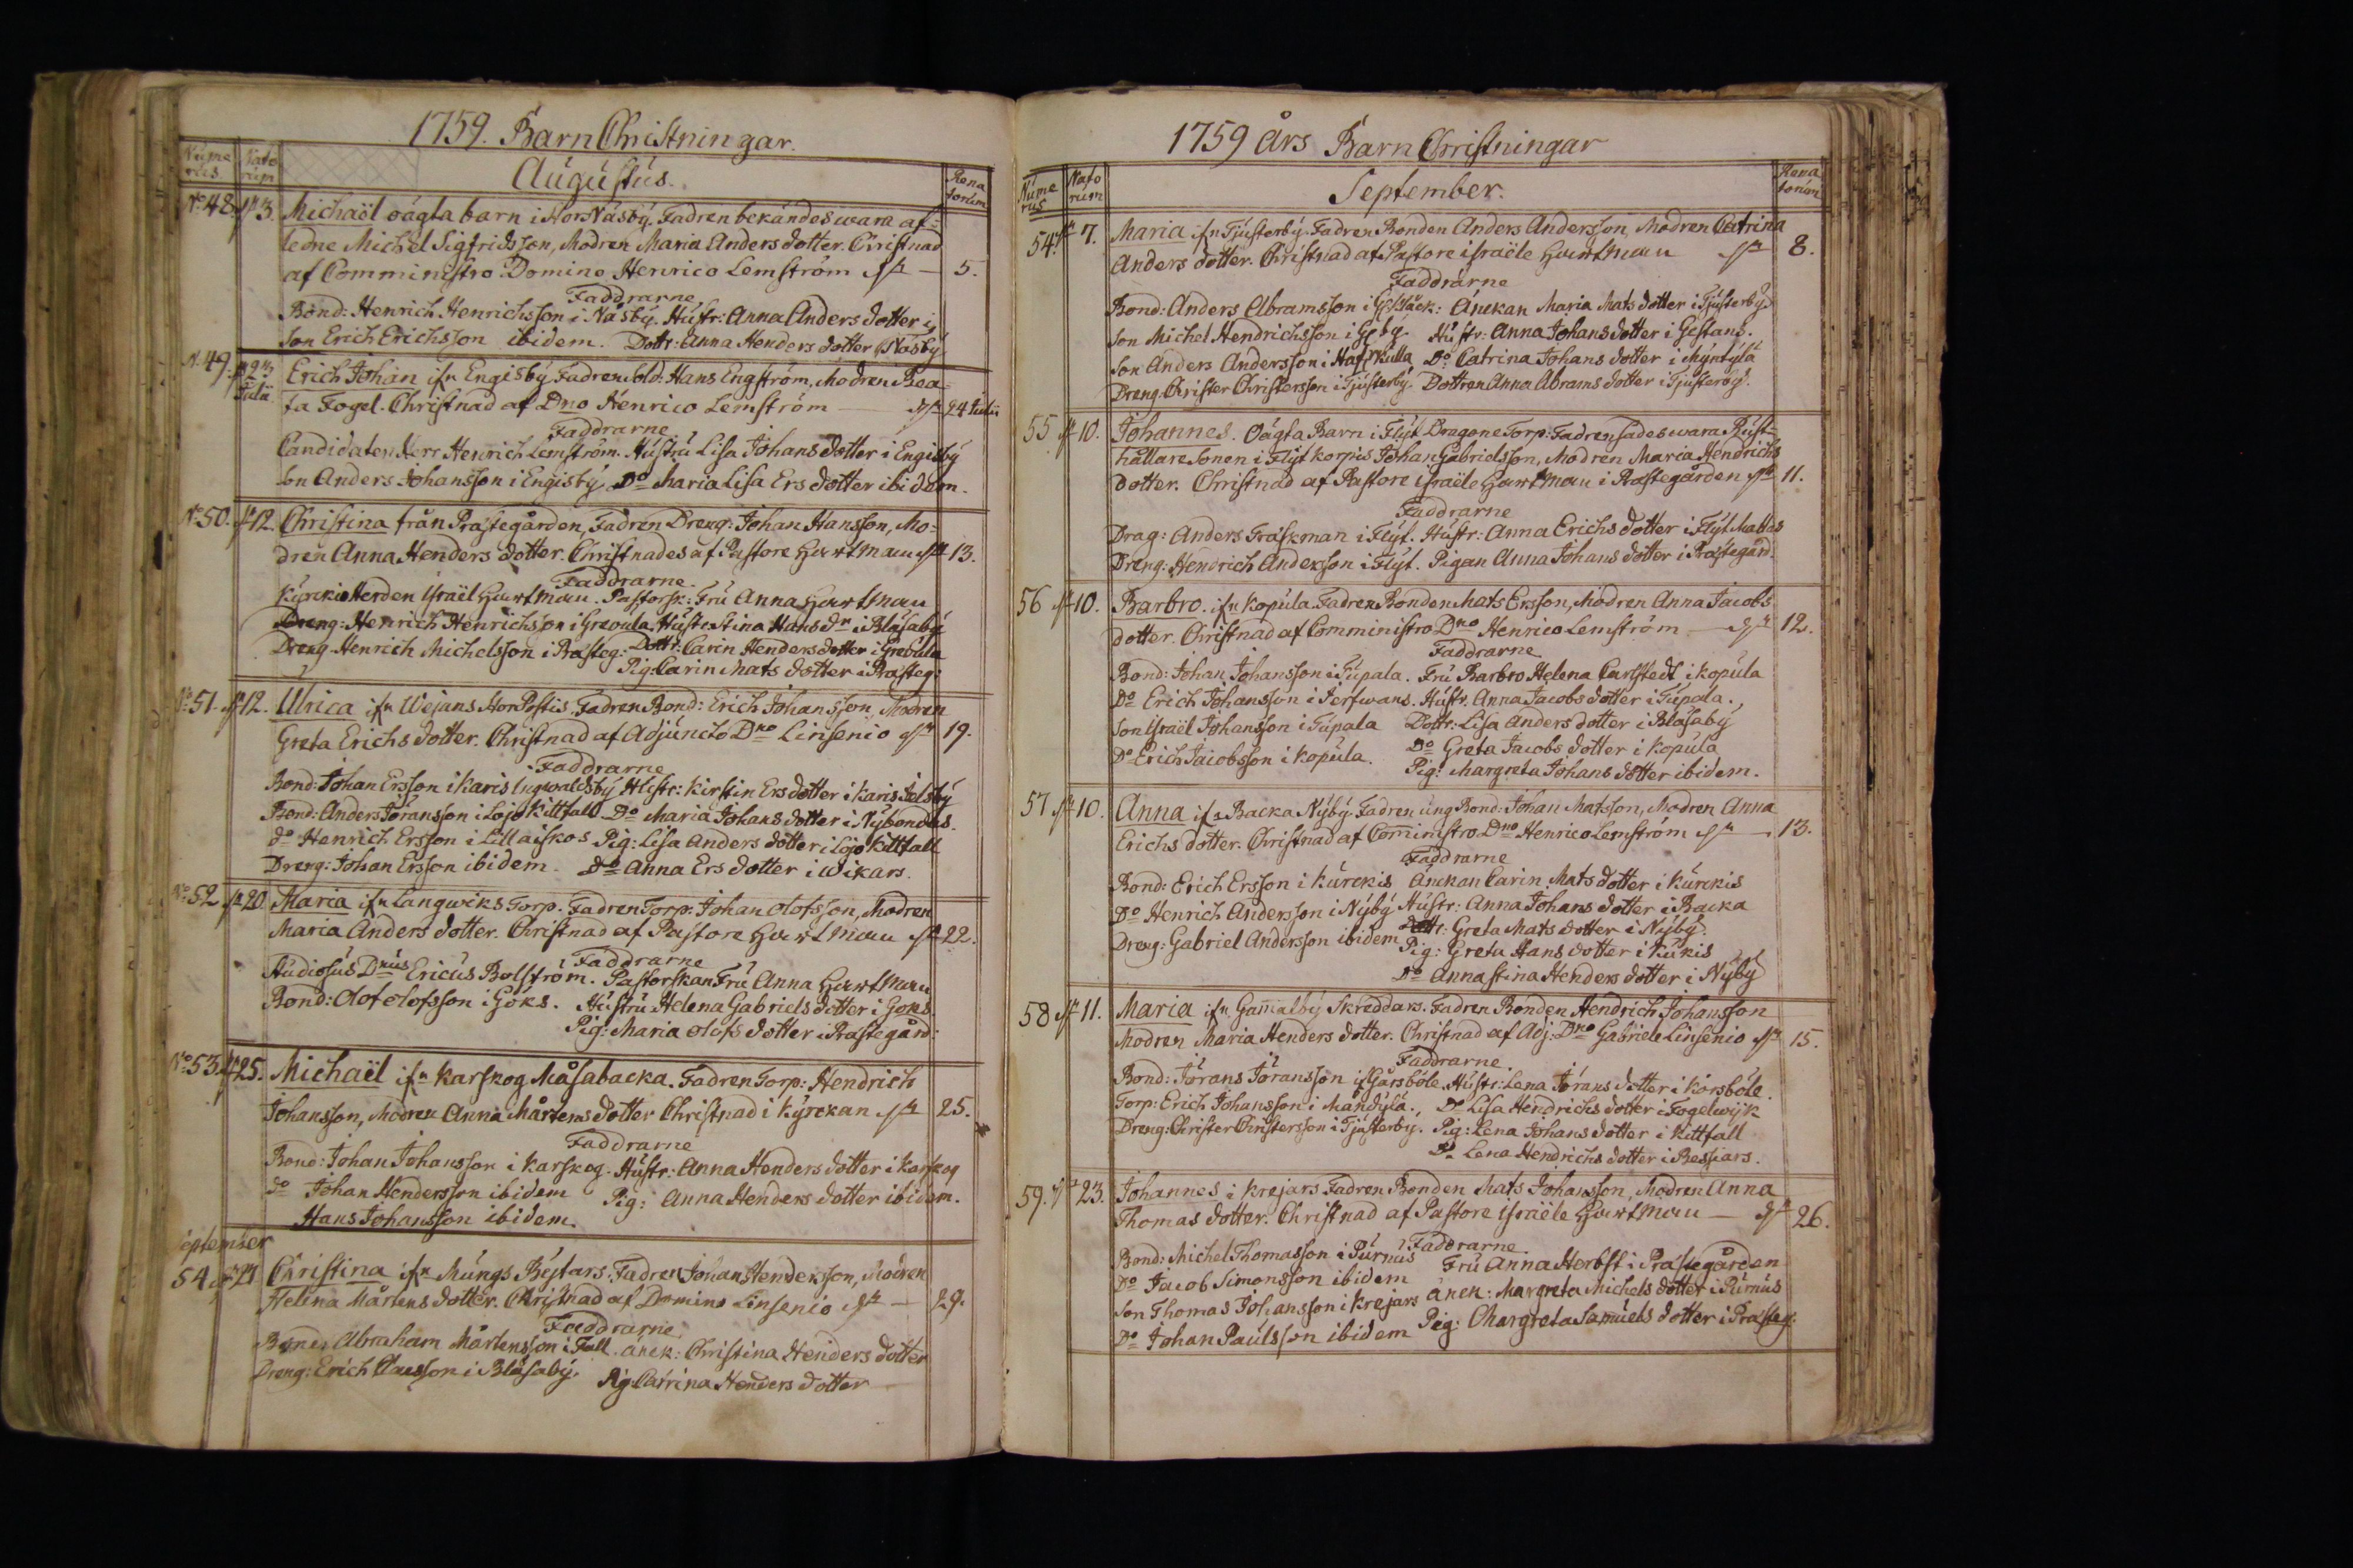 1759. Barn Christningar.
Nume
rus
Nato
rum
Augustus.
Rena
torum
No 48. 3. Michaël oägta barn i HorNäsbÿ. Fadren bekändes wara af-
ledne Michel Sigfridsson, Modren Maria Andersdotter. Christnad
af Comministro Domino Henrico Lemström — 5.
Faddrarne
Bond: Henrich Henrichsson i Näsbÿ. Hustr: Anna Anders dotter i
Son Erich Erichsson ibidem. Dottr: Anna Henders dotter i Näsbÿ
N. 49. Erich Johan if:n Engisbÿ Fadren Sold: Hans Engström, Modren Bea-
ta Fogel. Christnad af Dno Henrico Lemström — 24 Julii
Faddrarne
Candidaten Herr Henrich Lemström. Hustru Lisa Johans dotter i Engisbÿ
Son Anders Johansson i Engisbÿ. Do Maria Lisa Ers dotter ibidem.
No 50. 12. Christina från Prästegården, Fadren Dreng: Johan Hansson, Mo-
dren Anna Henders dotter. Christnades af Pastore Hartman 13.
Faddrarne.
Kÿrckio Herden Israël Hartman. Pastorsk: Fru Anna Hartman
Dreng: Henrich Henrichsson i Grevula, Hust: Stina Hans dr i Blåsabÿ
Dreng Henrich Michelsson i Prästeg: Dottr: Carin Henders dotter i Grebula
Pig: Carin Mats dotter i Prästeg:
No 51. 12. Ulrica if:n Wejans HorPostis. Fadren Bond: Erich Johansson, Modren
Greta Erichs dotter. Christnad af Adjuncto Dno Linsenio 19.
Faddrarne
Bond: Johan Ersson i Karis Ingwaldsbÿ Hustr: Kirstin Ers dotter i Karis
Bond: Anders Jöransson i Lojo Kittfall Do Maria Johans dotter i Nÿbondas.
do Henrich Ersson i Lillaiskos Pig: Lisa Anders dotter i Lojo Kittfall
Dreng: Johan Ersson ibidem. Do Anna Ers dotter i Wikars.
No 52 20 Maria if:n Langwiks Torp. Fadren Torp: Johan Olofsson, Modren
Maria Anders dotter. Christnad af Pastore Hartman 22.
Faddrarne
Studiosus Dnus Ericus Bolström. Pastorskan Fru Anna Hartman
Bond: Olof Olofsson i Göks. Hustru Helena Gabriels dotter i Göks
Pig: Maria Olofs dotter i Prästegård:
No 53. 25. Michaël if:n Karskog Måsabacka. Fadren Torp: Hendrich
Johansson, Modren Anna Mårtens dotter Christnad i Kÿrckan 25.
Faddrarne
Bond: Johan Johansson i Karskog. Hustr: Anna Henders dotter i Karskog
do Johan Hendersson ibidem Pig: Anna Henders dotter ibidem.
Hans Johansson ibidem.
September
54 21 Christina if:n Mungs Bÿtars. Fadren Johan Hendersson, Modren
Helena Mårtens dotter. Christnad af Domino Linsenio — 29.
Faddrarne
Abraham Mårtensson i Fall. Änck: Christina Henders dotter
Dreng: Erich Claesson i Blåsabÿ. Pig Catrina Henders dotter
1759 års Barn Christningar
Nume
rus
Nato
rum
September.
Rena
torum
54. 7. Maria if:n Tjusterbÿ. Fadren Bonden Anders Andersson, Modren Catrina
Anders dotter. Christnad af Pastore Israële Hartman 8.
Faddrarne
Bond: Anders Abramsson i Änckan Maria Mats dotter i Tjusterbÿ.
Son Michel Hendrichsson i Hustr: Anna Johans dotter i Gestans.
Son Anders Andersson i Do Catrina Johans dotter i Mÿntÿlä
Dreng Christer Christersson i Tjusterbÿ. Dottren Anna Abrams dotter i Tjusterbÿ.
55 10. Johannes. Oägta Barn i Flÿt Dragone Torp. Fadren sades wara Rust-
hållare Sonen i Flÿt Korpis Johan Gabrielsson, Modren Maria Hendrichs
dotter. Christnad af Pastore Israële Hartman i Prästegården 11.
Faddrarne
Drag: Anders Fräskman i Flÿt. Hustr: Anna Erichs dotter i Flÿt Mattas
Dreng: Hendrich Andersson i Flÿt. Pigan Anna Johans dotter i Prästegård.
56 10. Barbro. if:n Kopula. Fadren Bonden Mats Ersson, Modren Anna Jacobs
dotter. Christnad af Comministro Dno Henrico Lemström — 12.
Faddrarne
Bond: Johan Johansson i Tupala. Fru Barbro Helena Carlstedt i Kopula
Do Erich Johansson i Jerfwans. Hustr. Anna Jacobs dotter i Tupala.
Son Israël Johansson i Tupala Dottr: Lisa Anders dotter i Blåsabÿ
Do Erich Jacobsson i Kopula. Do Greta Jacobs dotter i Kopula
Pig: Margreta Johans dotter ibidem.
57 10. Anna if:n Backa Nÿbÿ. Fadren ung Bond: Johan Matsson, Modren Anna
Erichs dotter. Christnad af Comministro Dno Henrico Lemström 13.
Faddrarne
Bond: Erich Ersson i Kurckis Änckan Carin Mats dotter i Kurckis
Do Henrich Andersson i Nÿbÿ Hustr: Anna Johans dotter i Backa
Dreng: Gabriel Andersson ibidem Dottr: Greta Mats dotter i Nÿbÿ.
Pig: Greta Hans dotter i Kukis
Do Anna Stina Henders dotter i Nÿbÿ
58 11. Maria if:n Gam̅albÿ Skreddars. Fadren Bonden Hendrich Johansson
Modren Maria Henders dotter. Christnad af Adj: Dno Gabriele Linsenio 15.
Faddrarne.
Bond: Jörans Jöransson i Gårsböle. Hustr: Lena Jörans dotter i Korsböle.
Torp: Erich Johansson i Mandÿlä., Do Lisa Hendrichs dotter i Fogelwijk
Dreng: Christer Christersson i Tjusterby. Pig: Lena Johans dotter i Kittfall
Do Lena Hendrichs dotter i Bessars.
59. 23. Johannes i Krejars Fadren Bonden Mats Johansson, Modren Anna
Thomas dotter. Christnad af Pastore Israële Hartman — 26.
Faddrarne.
Bond: Michel Thomasson i Purnus Fru Anna Herbst i Prästegården
Do Jacob Simonsson ibidem Änck: Margreta Michels dotter i Purnus
Son Thomas Johansson i Krejars Pig: Margreta Samuels dotter i Prästeg:
Do Johan Paulsson ibidem